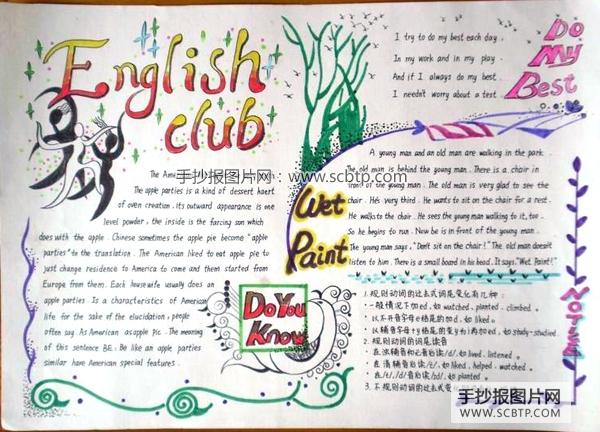 English
club
I try to do my best each day.
In my work and in my play.
And if I always do my best.
I needn't worry about a test.
Do
My
Best
手抄报图片网：www.scbtp.com
The Ame
The apple parties is a kind of dessert haert
of oven creation. its outward appearance is one
level powder, the inside is the farcing son which
does with the apple. Chinese sometimes the apple pie become "apple
parties" to the translation. The American liked to eat apple pie to
just change residence to America to come and them started from
Europe from them. Each housewife usually does an
apple parties Is a characteristics of American
life for the sake of the elucidation, people
often say. As American as apple pic. The meaning
of this sentence BE: Be like an apple parties
similar have American special features.
Wet
Paint
A young man and an old man are walking in the park.
The old man is behind the young man. There is a chair in
front of the young man. The old man is very glad to see the
chair. He's very third. He wants to sit on the chair for a rest.
He walks to the chair. He sees the young man walking to it, too.
So he begins to run. Now he is in front of the young man.
The young man says, "Don't sit on the chair!" The old man doesn't
listen to him. There is a small board in his boad. It says, "Wet Paint!"
Do You
Know
1. 规则动词的过去式词尾变化有几种
一般情况下加ed，如 watched, planted, climbed。
以不开音字母e结尾的加d，如 liked。
以辅音字母+y结尾的变y为i再加ed，如 study-studied。
2. 规则动词的词尾读音
在浊辅音和元音后读/d/，如 lived, listened。
在清辅音后读/t/，如 liked, helped, watched。
在/t/, /d/音后读/id/，如 planted。
3. 不规则动词的过去式
手抄报图片网
WWW.SCBTP.COM